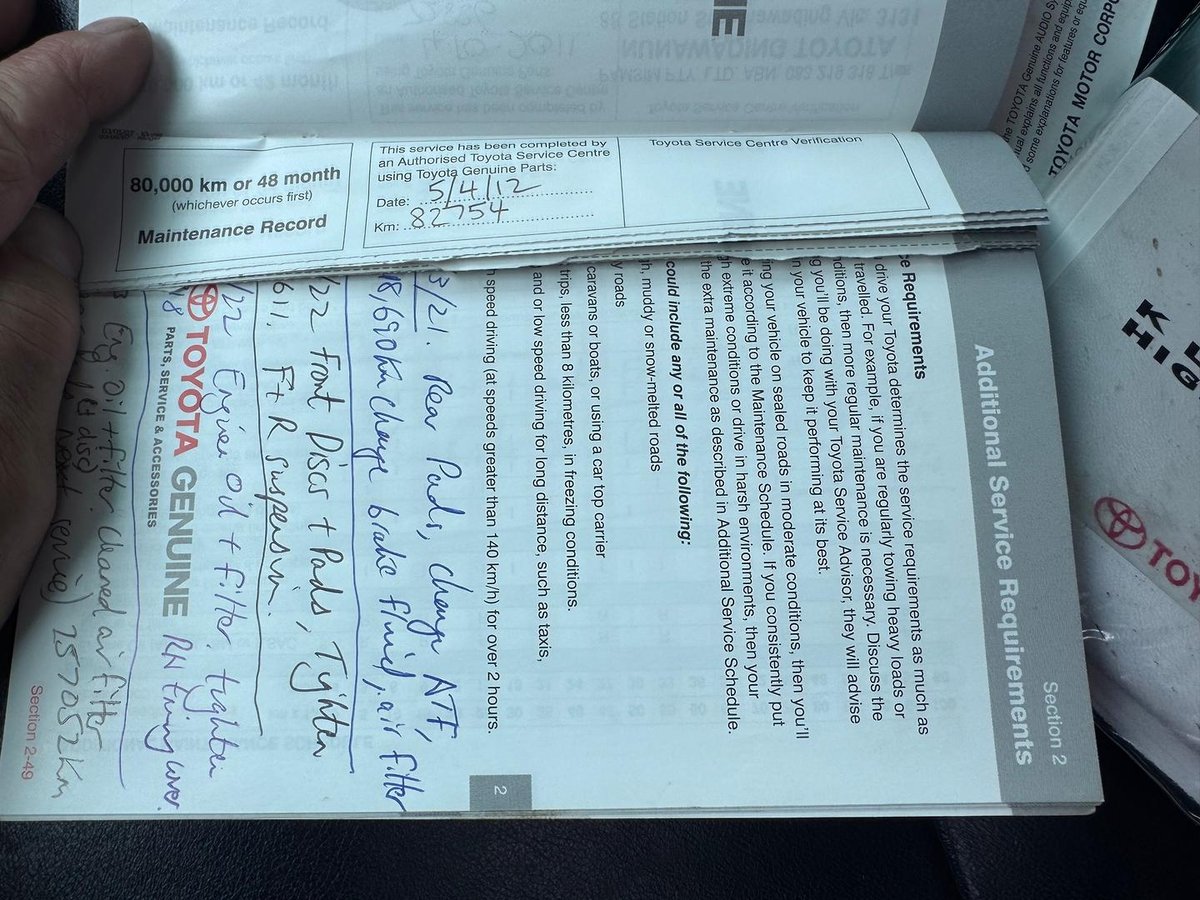 80,000 km or 48 month
(whichever occurs first)
Maintenance Record
This service has been completed by
an Authorised Toyota Service Centre
using Toyota Genuine Parts:
Date: 5/4/12
Km: 82754
Toyota Service Centre Verification
Section 2
Additional Service Requirements
e Requirements
drive your Toyota determines the service requirements as much as
travelled. For example, if you are regularly towing heavy loads or
ditions, then more regular maintenance is necessary. Discuss the
g you'll be doing with your Toyota Service Advisor, they will advise
n your vehicle to keep it performing at its best.
ng your vehicle on sealed roads in moderate conditions, then you'll
e it according to the Maintenance Schedule. If you consistently put
h extreme conditions or drive in harsh environments, then your
the extra maintenance as described in Additional Service Schedule.
could include any or all of the following:
h, muddy or snow-melted roads
y roads
caravans or boats, or using a car top carrier
trips, less than 8 kilometres, in freezing conditions.
and or low speed driving for long distance, such as taxis,
speed driving (at speeds greater than 140 km/h) for over 2 hours.
2
3/21. Rear Pads, change ATF,
18,690km change brake fluid, air filter
/22 Front Discs + Pads, Tighten
611. F+R suspension.
/22 Engine Oil + filter, tighten
RH timing cover.
TOYOTA GENUINE
PARTS, SERVICE & ACCESSORIES
Eng. Oil + filter. Cleaned air filter
next service) 257052km
Section 2-49
TOYOTA MOTOR CORPO
he TOYOTA Genuine AUDIO Sy
ual explains all functions and equip
d some explanations for features or equ
TOY